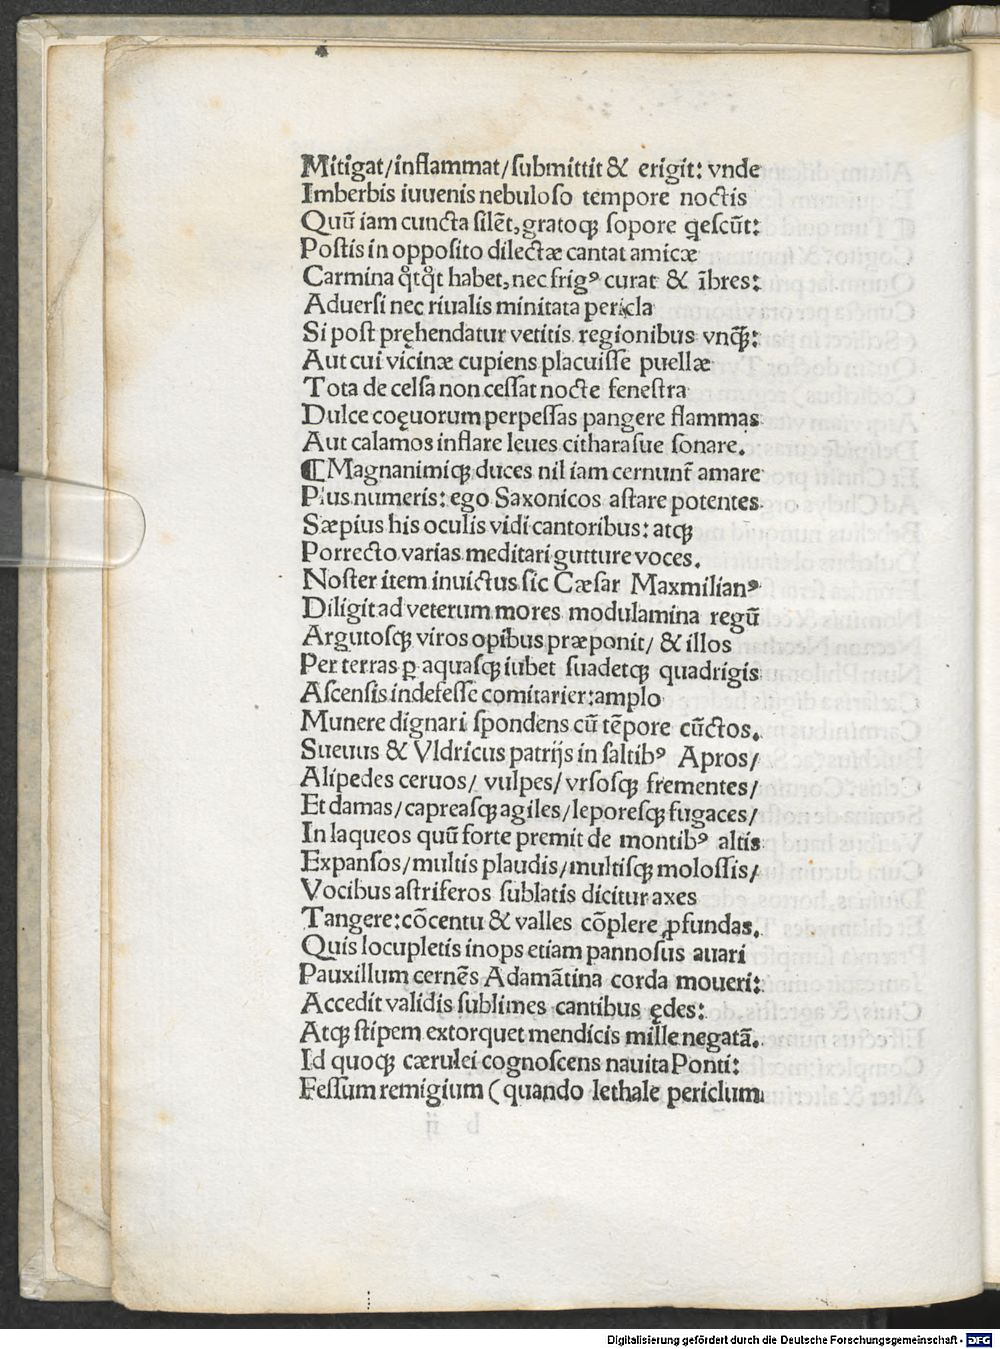 Mitigat/inflammat/ſubmittit & erigit: vnde
Imberbis iuuenis nebuloſo tempore noctis
Quū iam cuncta ſilēt, gratoqꝫ ſopore qeſcūt:
Poſtis in oppoſito dilectæ cantat amicæ
Carmina qͦtqͦt habet, nec frigꝰ curat & ībres:
Aduerſi nec riualis minitata pericla
Si poſt pręhendatur vetitis regionibus vnqꝫ̄:
Aut cui vicinæ cupiens placuiſſe puellæ
Tota de celſa non ceſſat nocte feneſtra
Dulce coęuorum perpeſſas pangere flammas
Aut calamos inflare leues citharaſue ſonare.
⁋ Magnanimiqꝫ duces nil iam cernunt̄ amare
Plus numeris: ego Saxonicos aſtare potentes
Sæpius his oculis vidi cantoribus: atqꝫ
Porrecto varias meditari gutture voces.
Noſter item inuictus ſic Cæſar Maxmilianꝰ
Diligit ad veterum mores modulamina regū
Argutoſqꝫ viros opibus præponit/ & illos
Per terras ꝑ aquaſqꝫ iubet ſuadetqꝫ quadrigis
Aſcenſis indefeſſe comitarier: amplo
Munere dignari ſpondens cū tēpore cūctos.
Sueuus & Vldricus patrijs in ſaltibꝰ Apros/
Alipedes ceruos/ vulpes/ vrſoſqꝫ frementes/
Et damas/ capreaſqꝫ agiles/ leporeſqꝫ fugaces/
In laqueos quū forte premit de montibꝰ altis
Expanſos/ multis plaudis/ multiſqꝫ moloſſis/
Vocibus aſtriferos ſublatis dicitur axes
Tangere: cōcentu & valles cōplere ꝓfundas.
Quis locupletis inops etiam pannoſus auari
Pauxillum cernēs Adamātina corda moueri:
Accedit validis ſublimes cantibus ędes:
Atqꝫ ſtipem extorquet mendicis mille negatā.
Id quoqꝫ cærulei cognoſcens nauita Ponti:
Feſſum remigium (quando lethale periclum
Digitalisierung gefördert durch die Deutsche Forschungsgemeinschaft - DFG